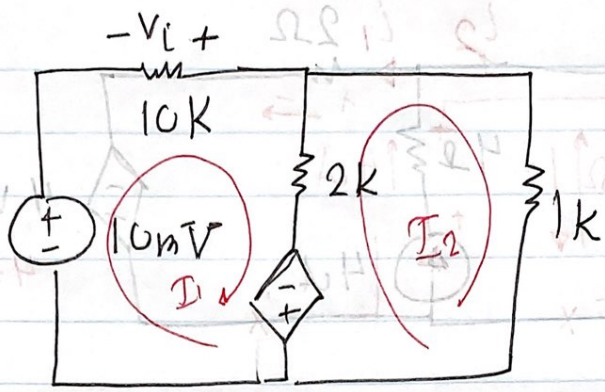 -Vi +
10K
2k
1k
+
-
10mV
I1
I2
-
+